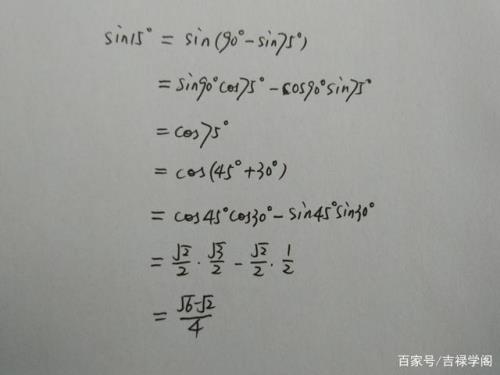 sin15° = sin(90°-sin75°)
= sin90°cos75° - cos90°sin75°
= cos75°
= cos(45°+30°)
= cos45°cos30° - sin45°sin30°
= √2/2 · √3/2 - √2/2 · 1/2
= (√6-√2)/4
百家号/吉禄学阁